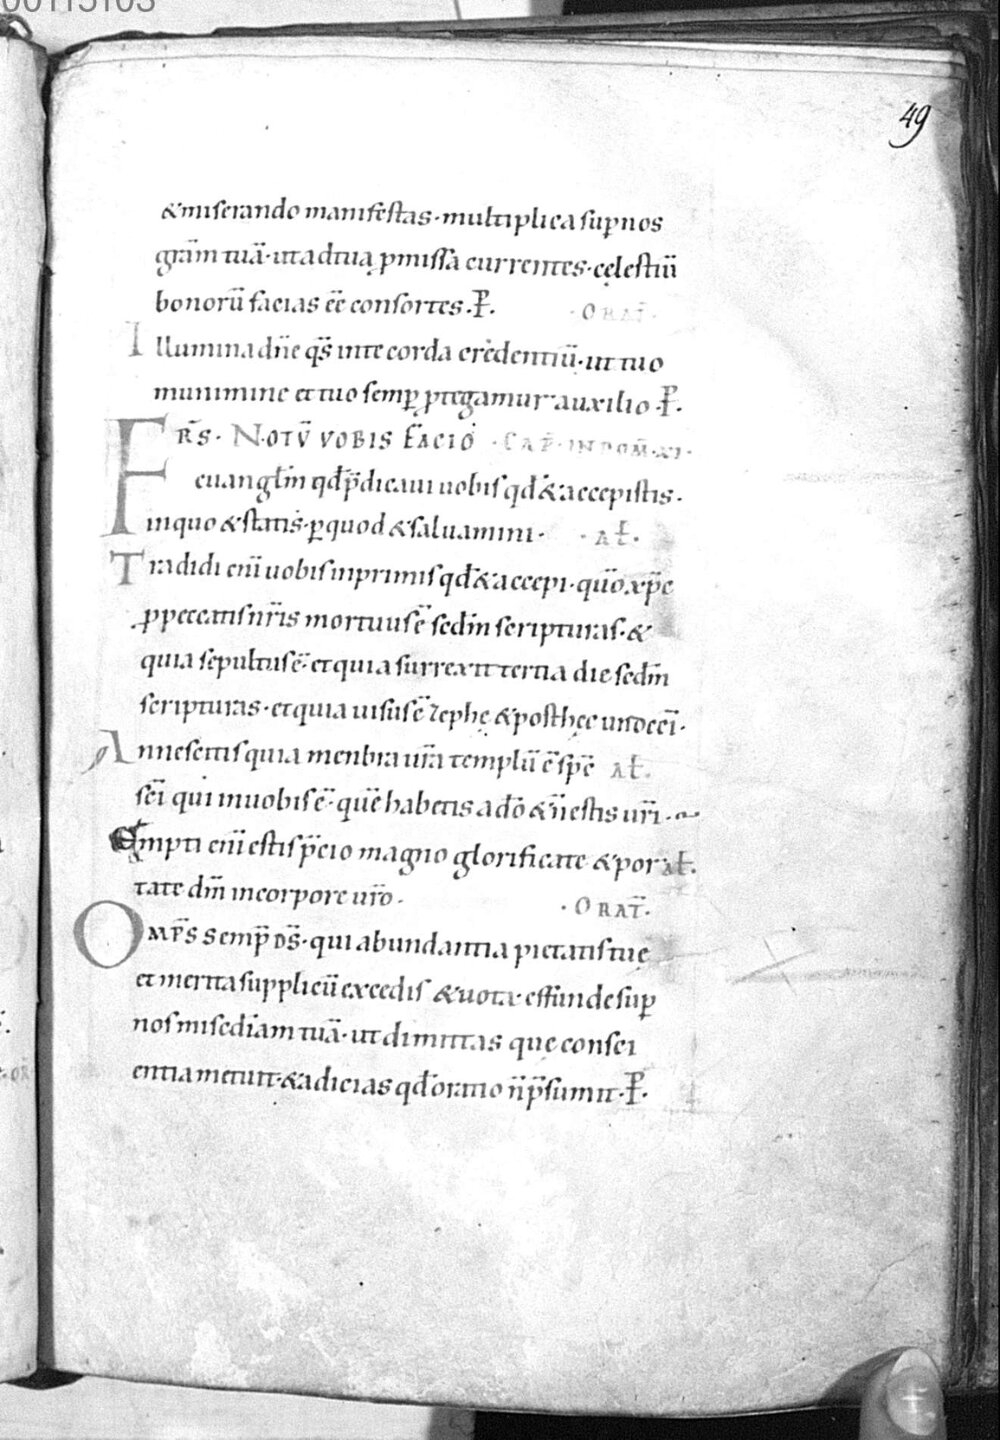 00115103
49
&miserando manifestas·multiplica sup nos
gr̄am tuā·ut ad tua ꝓmissa currentes·cęlestiū
bonorū facias eē consortes·P̶.
·ORAT̄·
Illumina dn̄e qs̄ in te corda credentiū·ut tuo
munimine et tuo semꝑ ꝓtegamur auxilio·P̶.
FR̄S·NOTV̄ VOBIS FACIO ·CAP̄·IN DOM̄·XI·
euangl̄m qd̄ p̄dicaui uobis qd̄ & accepistis·
in quo & statis·ꝑ quod & saluamini· ·Al̄·
Tradidi eni̅ uobis in primis qd̄ & accepi·qūo xp̄c
ꝓ peccatis nr̄is mortuus ē sed̄m scripturas·&
quia sepultus ē·et quia surrexit tertia die sed̄m
scripturas·et quia uisus ē cephe & post hec undeci̅·
An nescitis quia menbra ur̄a templū ē sp̄c Al̄·
sc̄i qui in uobis ē·quē habetis a dō & n̄ estis ur̄i·
Empti eni̅ estis p̄cio magno glorificate & por Al̄·
tate dm̄ in corpore ur̄o· ·ORAT̄·
OMP̄S SEMP̄ DS̄·qui abundantia pietatis tuę
et merita supplicū excedis & uota·effunde sup
nos mis̄ediam tuā·ut dimittas que consci
entia metuit·& adicias qd̄ oratio n̄ p̄sumit·P̶.